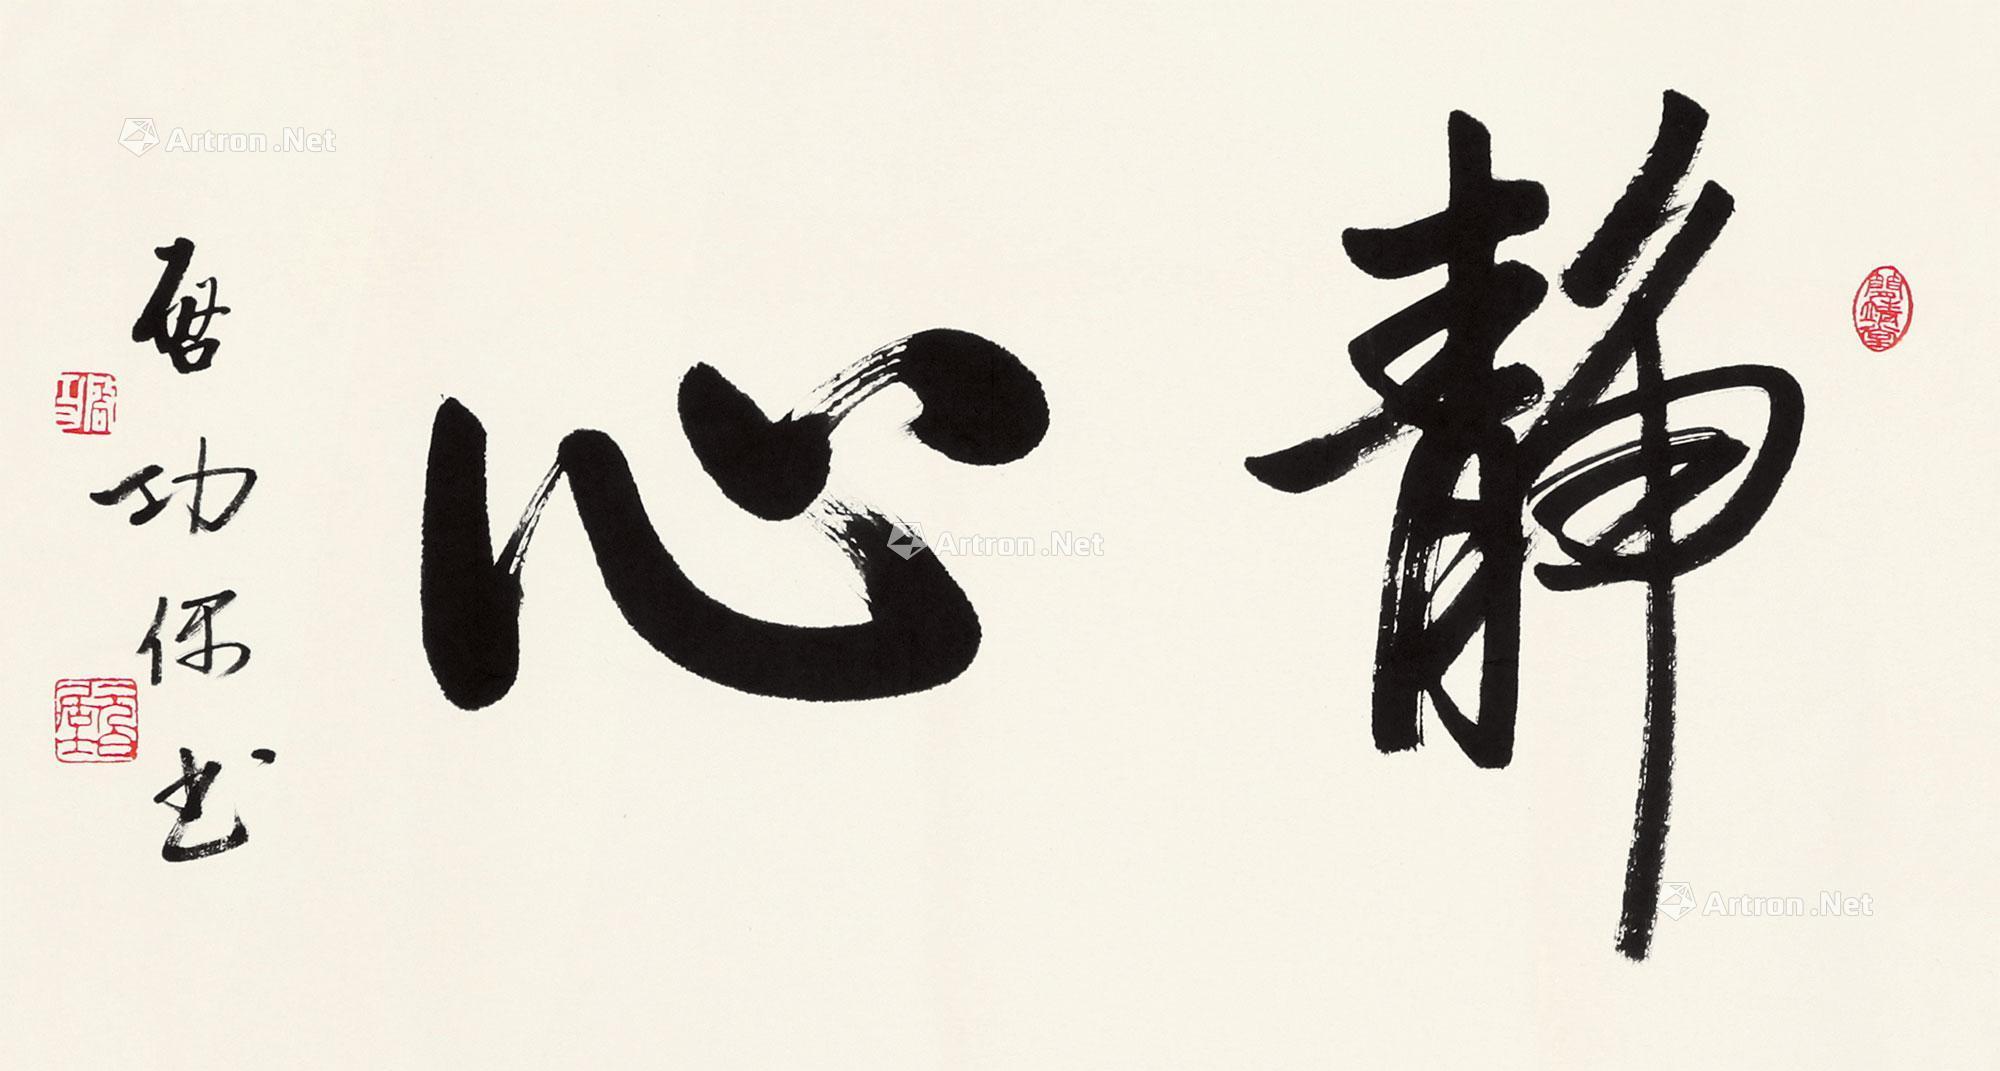 静心
啓功偶书
簡靖堂
Artron.Net
Artron.Net
Artron.Net